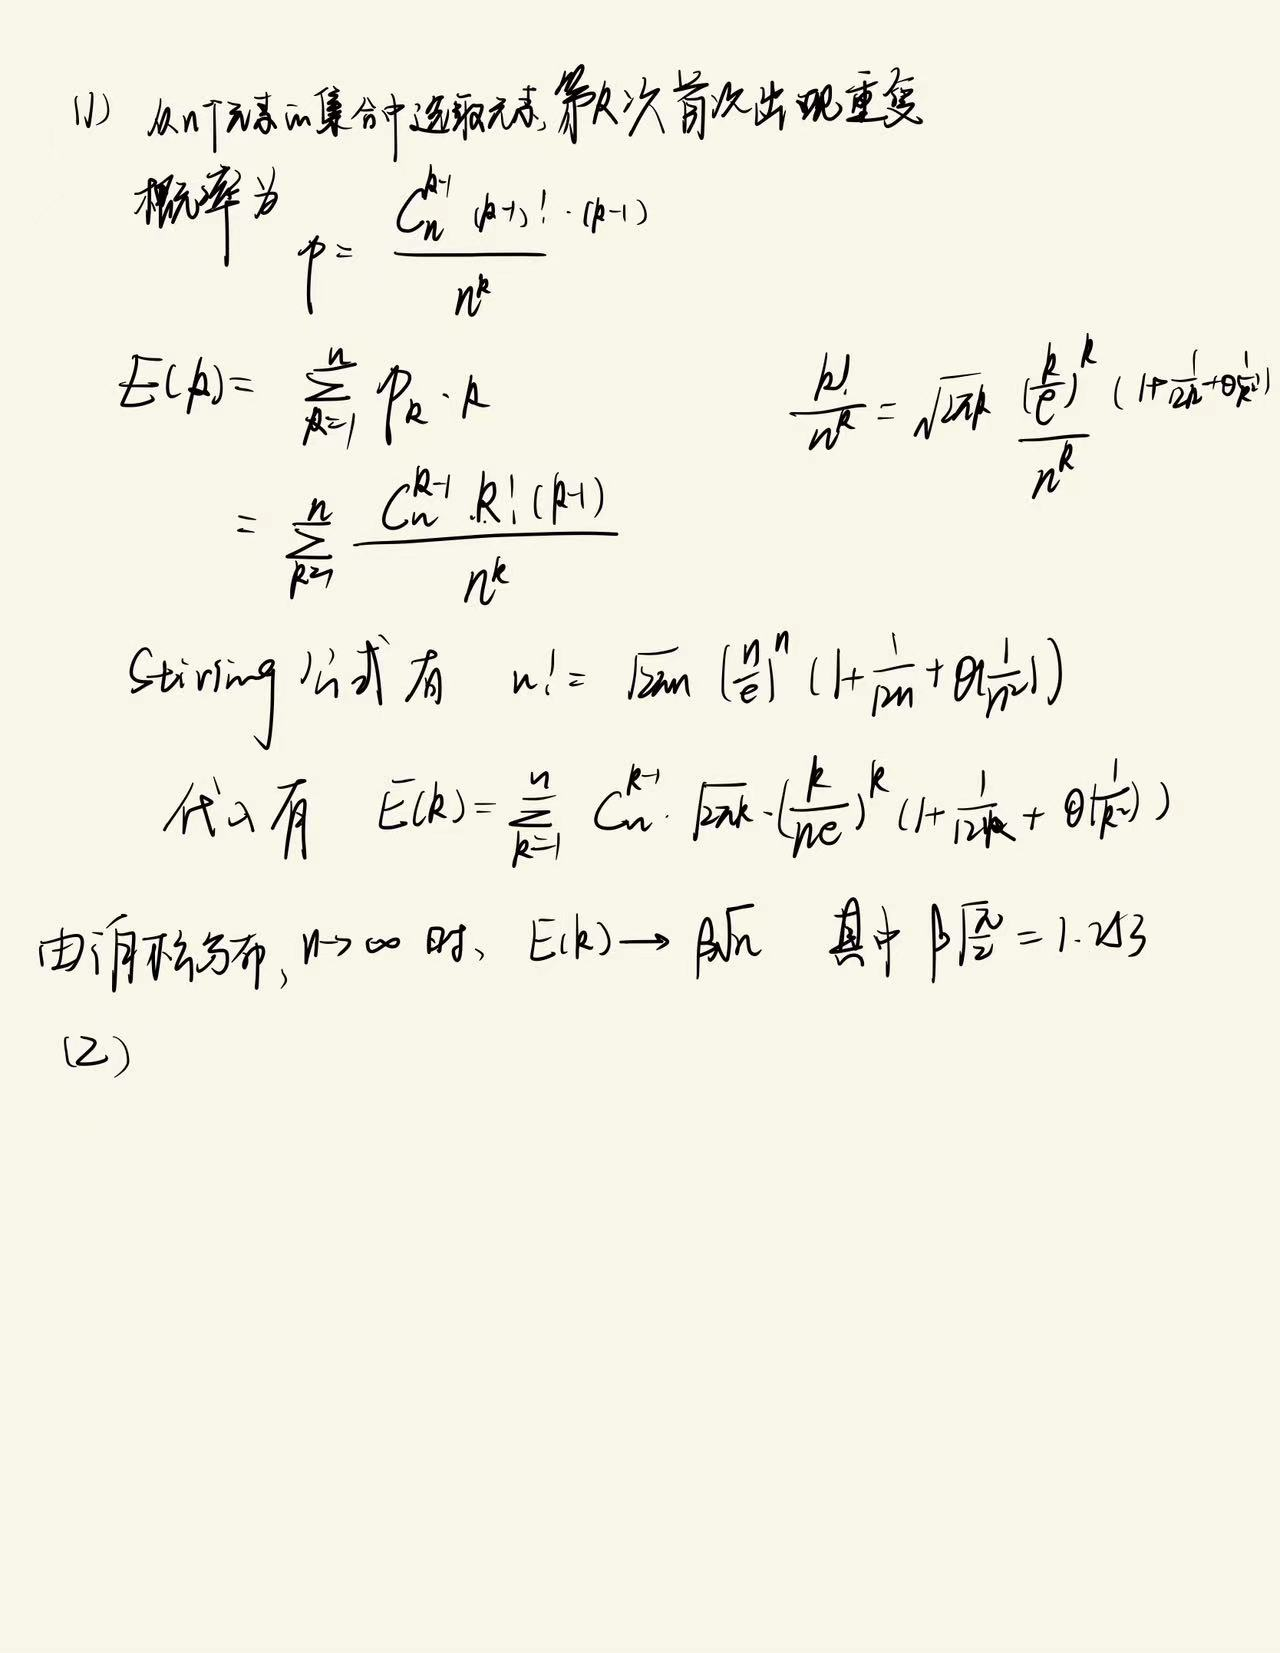 (1) 从n个元素的集合中选取元素,第k次首次出现重复
概率为
p = \frac{C_n^{k-1} (k-1)! \cdot (k-1)}{n^k}
E(k) = \sum_{k=1}^{n} p_k \cdot k
\frac{k!}{n^k} = \sqrt{2\pi k} \frac{(\frac{k}{e})^k}{n^k} (1+\frac{1}{12k}+θ(\frac{1}{k^2}))
= \sum_{k=1}^{n} \frac{C_n^{k-1} \cdot k! (k-1)}{n^k}
Stirling 公式有 n! = \sqrt{2πn} (\frac{n}{e})^n (1+\frac{1}{12n}+θ(\frac{1}{n^2}))
代入有 E(k) = \sum_{k=1}^{n} C_n^{k-1} \cdot \sqrt{2πk} \cdot (\frac{k}{ne})^k (1+\frac{1}{12k}+θ(\frac{1}{k^2}))
由泊松分布, n→∞ 时、 E(k)→ β\sqrt{n} 其中 β\sqrt{\frac{π}{2}} = 1.253
(2)